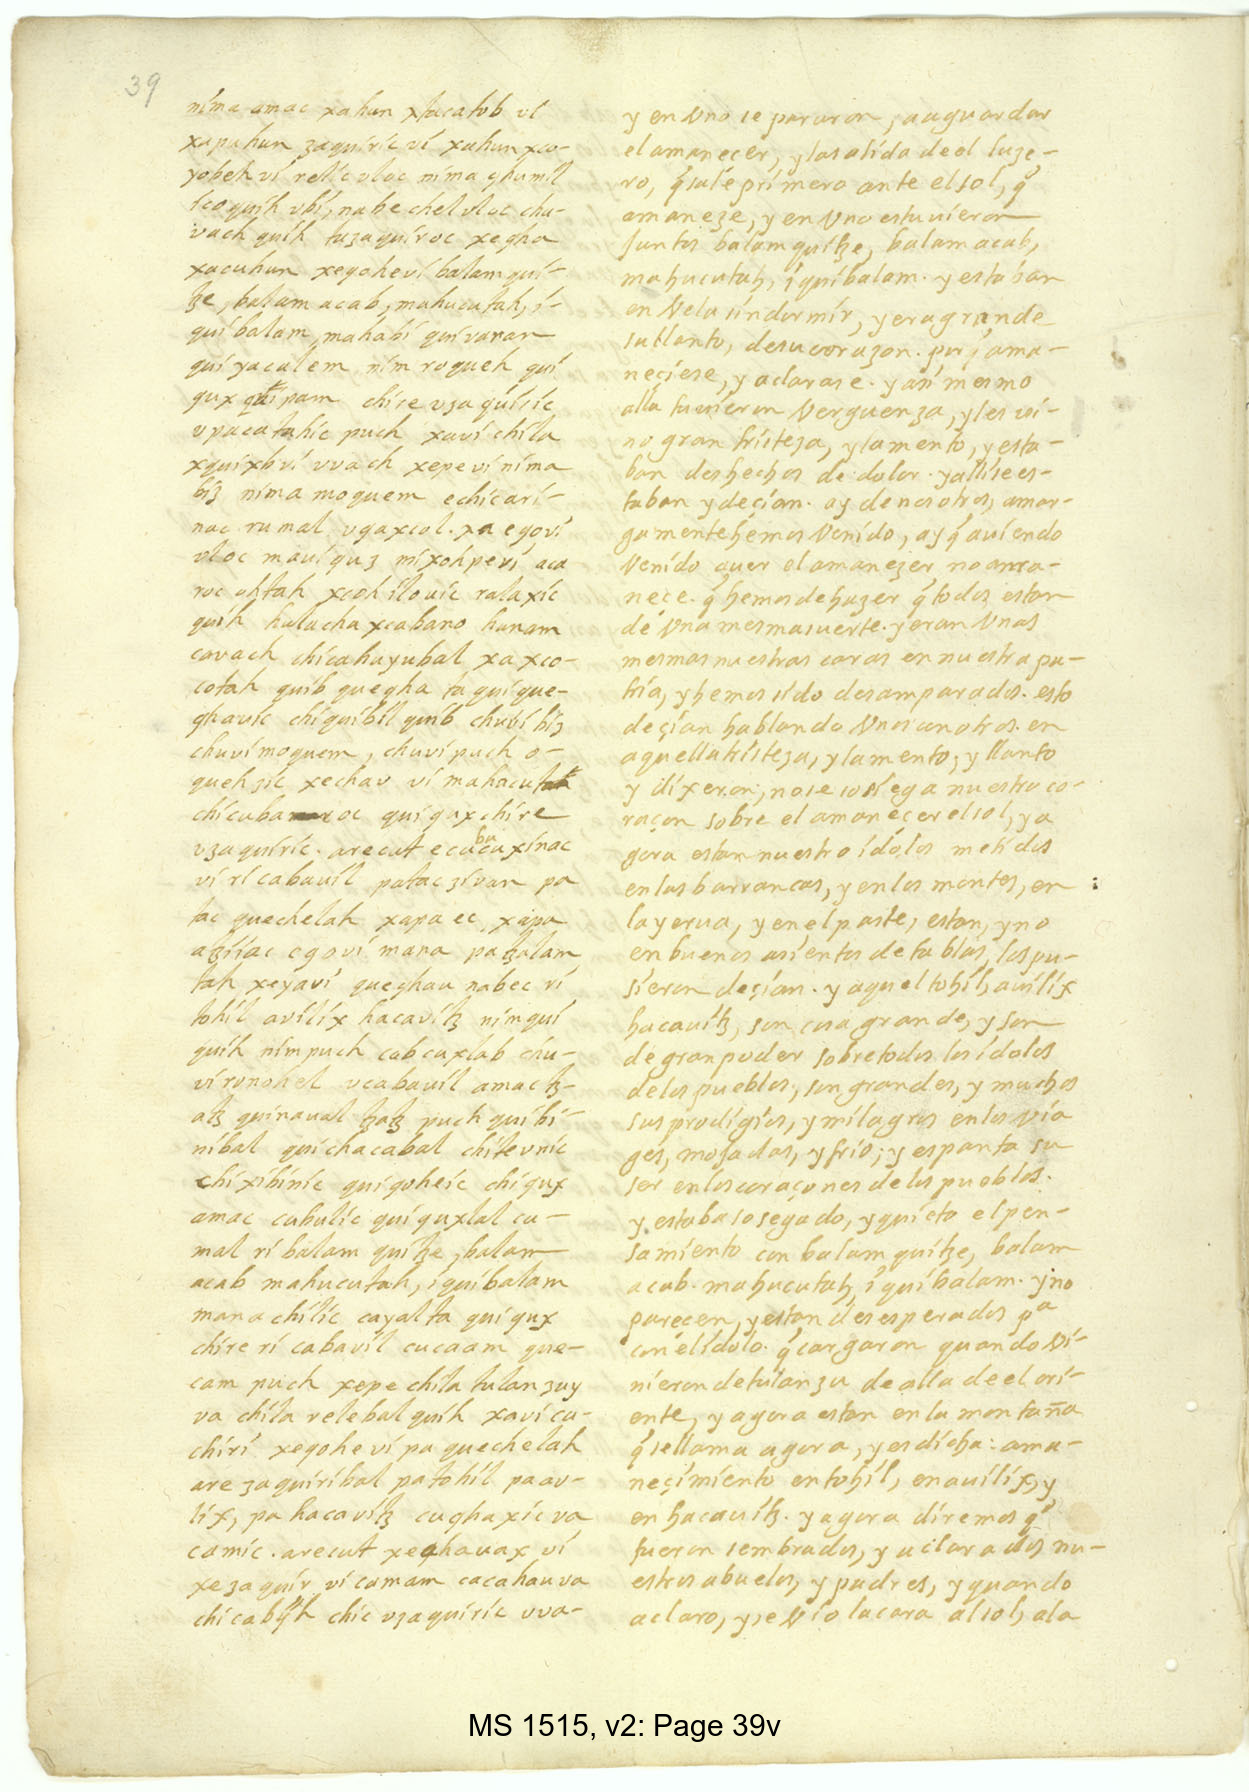 39
nima amac xahun xtacatob vi
xapahun zaquiric vi xahun xco-
yobeh vi relic vloc nima chumil
Ycoquih vbi, nabe chel vloc chu-
vach quih tuzaquiroc xecha
xacuhun xegohe vi balam qui-
tze, balam acab, mahucutah, i-
quibalam, mahabi quivaran
quiyacalem nim roqueh qui
qux quipam chire vzaquiric
vpacatahic puch xavi chila
xquixbvi vvach xepe vi nima
biz nima moquem echicari-
nac rumal vgaxcol. xa egovi
vloc maui quz mixohpevi aca
roc ohtah xcohilovic ralaxic
quih hulacha xcabano hunam
cavach chicahuyubal xa xco-
cotah quib quecha ta quique-
chavic chiquibil quib chuvi biz
chuvi moquem, chuvi puch o-
quehzic xechav vi mahacutah
chicuba roc quiqux chire
vzaquiric. arecut ecucuxinac
ba
vi ri cabauil pataczivan pa
tac quechelah xapa ec, xapa
atziiac egovi mana patzalam
tah xeyavi quechau nabec ri
tohil avilix hacavitz nim qui
quih nim puch cabcuxlab chu-
vi ronohel vcabauil amac tz-
atz quinaual tzatz puch quibi-
nibal quichacabal chitevnic
chixibinic quigoheic chiqux
amac cubulic quiquxlal cu-
mal ri balam quitze, balam
acab mahucutah, iquibalam
mana chilic cayalta quiqux
chire ri cabavil cucaam que-
cam puch xepe chila tulan zuy
va chila relebal quih xavi ca-
chiri xegohe vi pa quechelah
are zaquiribal patohil pa av-
lix, pa hacavitz cuchaxic va
camic. arecut xechauax vi
xezaquir vi camam cacahau va
chicabijh chic vzaquiric vva-
y en Vno se pararon, a aguardar
el amaneçer, y la salida de el luze-
ro, q̃ sale primero ante el sol, q̃
amaneze, y en Vno estuuieron
juntos balamquitze, balam acab,
mahucutah, iquibalam. y estaban
en Vela sin dormir, y era grande
su llanto, de su corazon. por q̃ ama-
neçiese, y aclarase. y assi mesmo
alla tuuieron Verguenza, y les vi-
no gran tristeza, y lamento, y esta-
ban deshechos de dolor. y alli se es-
taban y deçian. ay de nosotros, amar-
gamente hemos Venido, ay q̃ auiendo
Venido a uer el amanezer no ama-
neçe. q̃ hemos de hazer q̃ todos estan
de Vna mesma suerte. y eran Vnas
mesmas nuestras caras en nuestra pa-
tria, y hemos sido desamparados. esto
deçian hablando Vnos con otros. en
aquella tristeza, y lamento, y llanto
y dixeron, no se sosiega nuestro co-
raçon sobre el amaneçer el sol, y a
gora estan nuestro idolos metidos
en las barrancas, y en los montes, en
la yerua, y en el paste, estan, y no
en buenos asientos de tablas, los pu-
sieron deçian. y aquel tohil, auilix
hacauitz, son cosa grande, y son
de gran poder sobre todos los idolos
de los pueblos, son grandes, y muchos
sus prodigios, y milagros en los via
ges, mojados, y frio; y espanta su
ser en los coraçones de los pueblos.
y estaba sosegado, y quieto el pen-
samiento con balam quitze, balam
acab. mahucutah, iquibalam. y no
pareçen, y estan desesperados pª
con el idolo. q̃ cargaron quando Vi-
nieron de tulanzu de alla de el ori-
ente, y agora estan en la montaña
q̃ se llama agora, y es dicha: ama-
neçimiento en tohil, en auilix, y
en hacauitz. y agora diremos q̃
fueron sembrados, y aclarados nu-
estros abuelos, y padres, y quando
aclaro, y se Vio la cara al sol, a la
MS 1515, v2: Page 39v